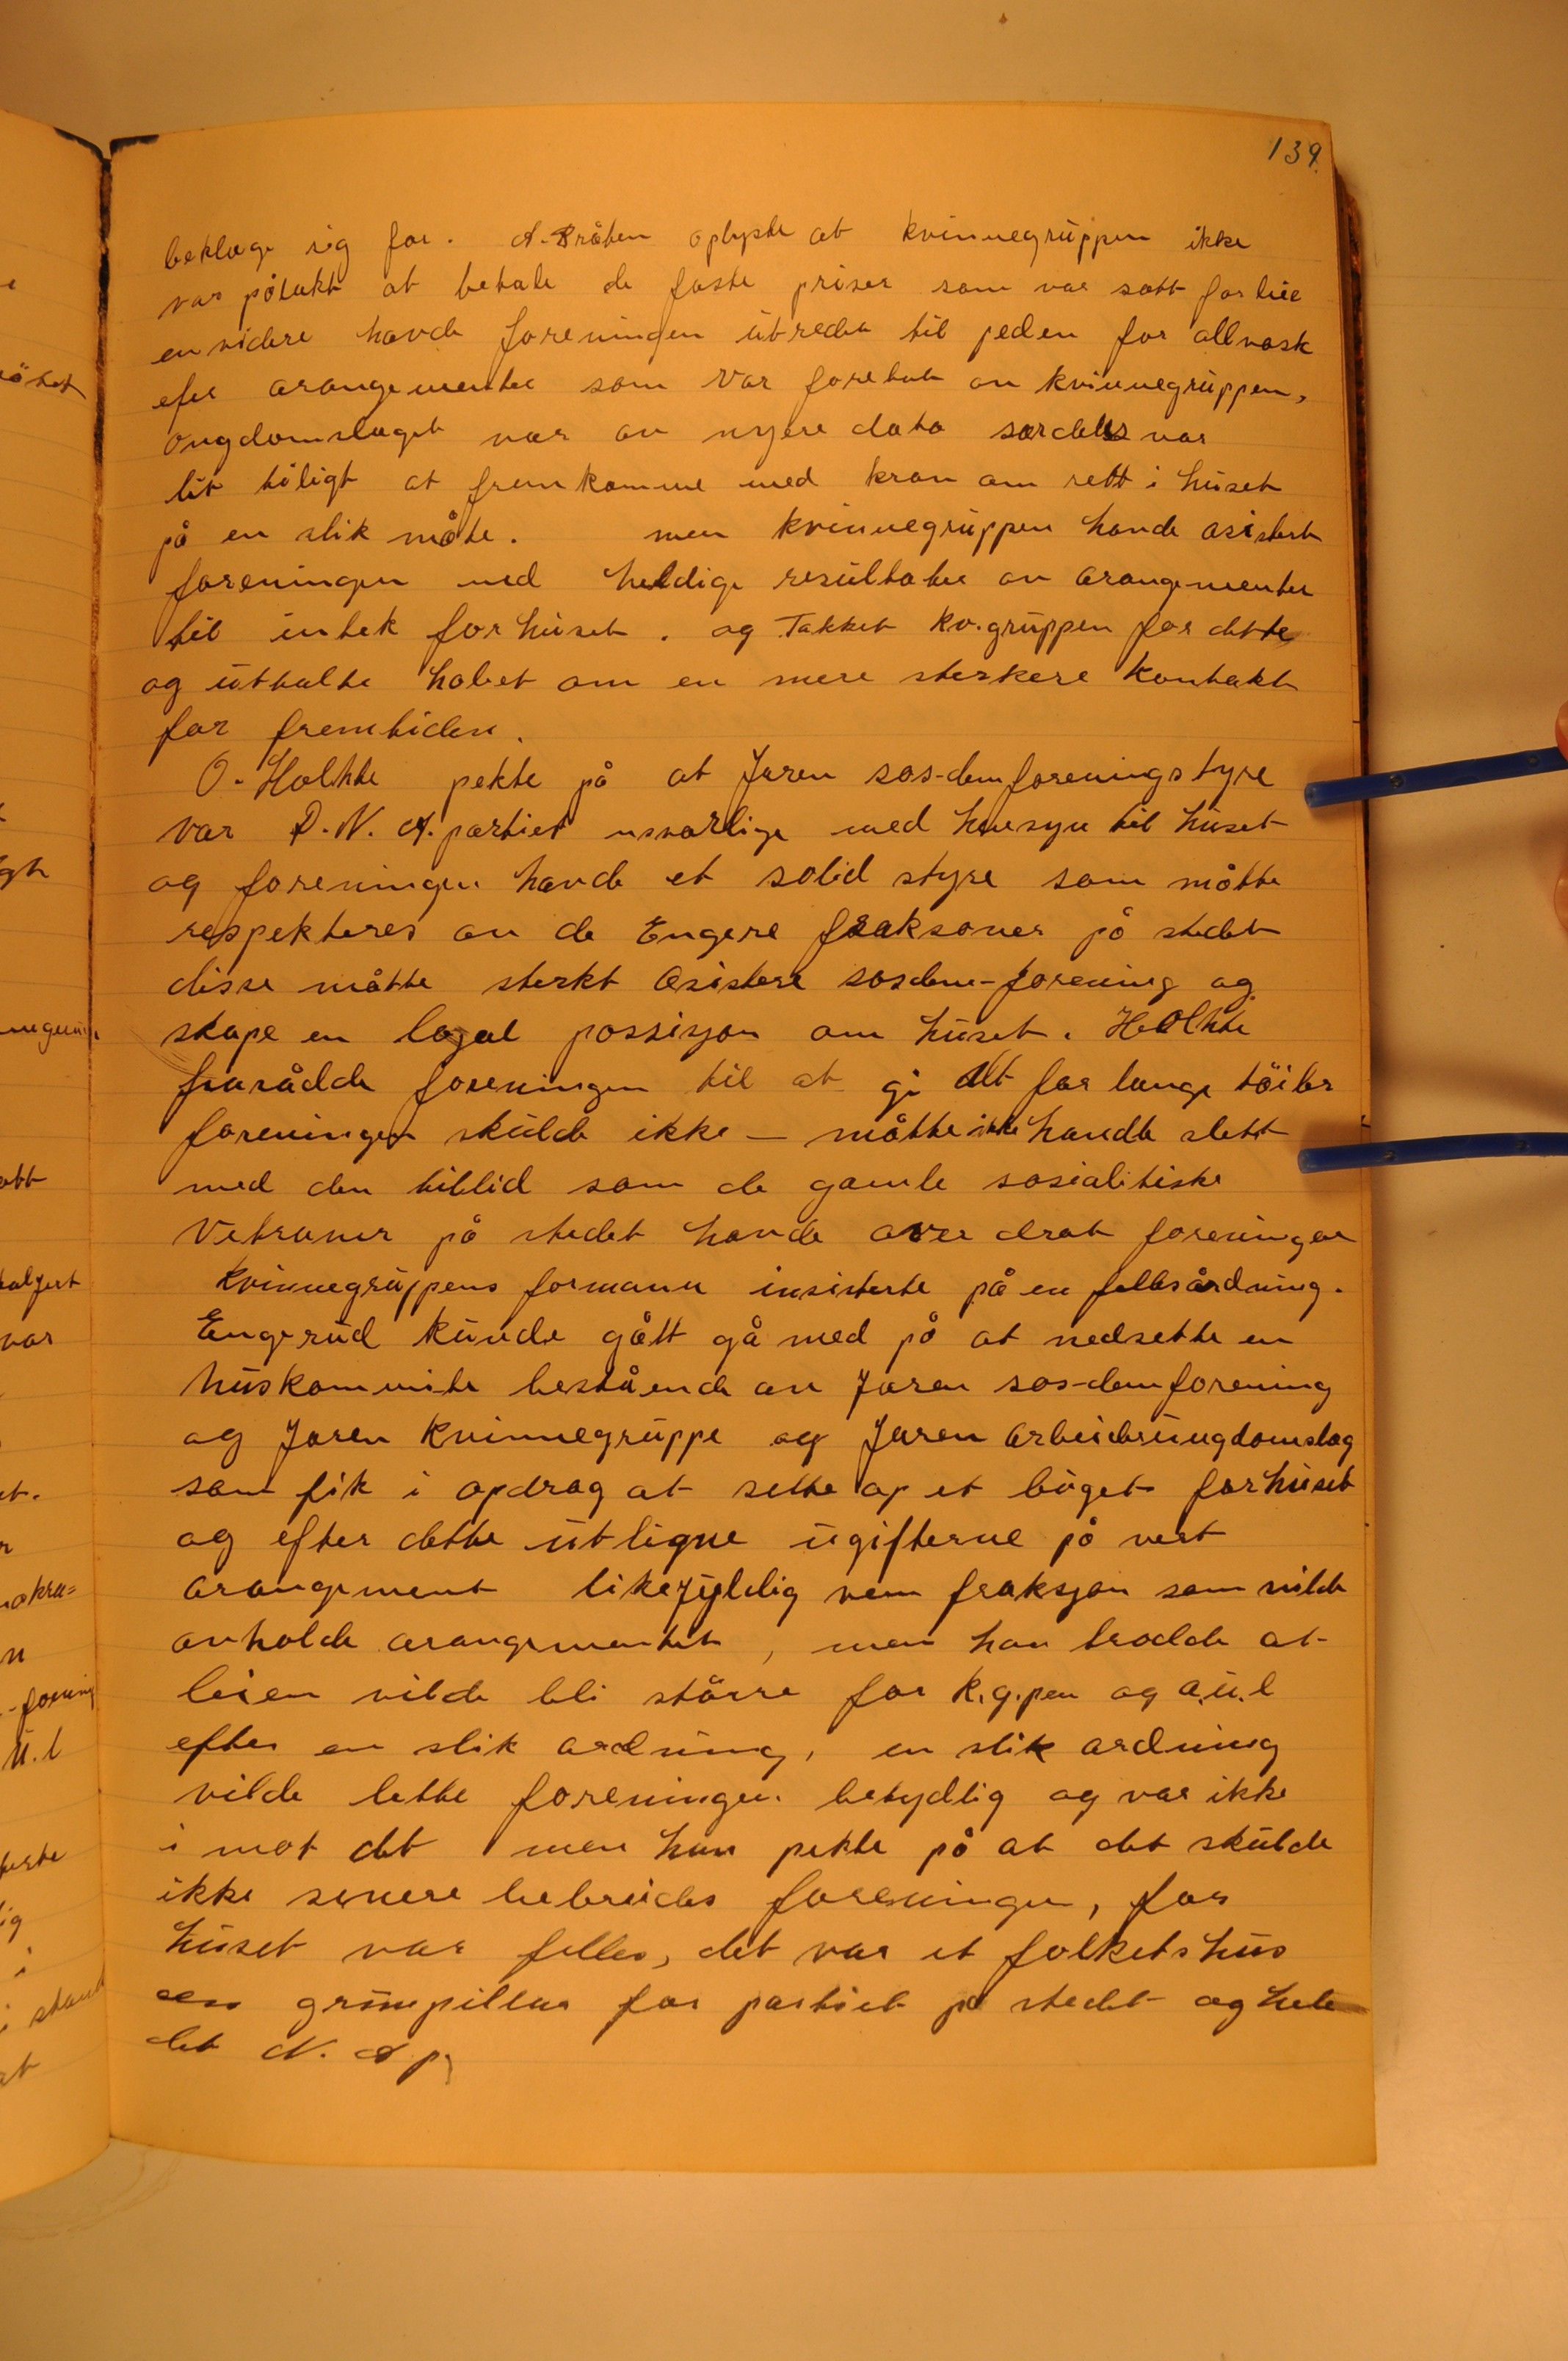 139.
beklage sig for. A. Bråten oplyste at kvinnegruppen ikke
var pålakt at betale de faste priser som var satt for leie
en videre havde foreningen utredet til peden for all vask
efer arangementer som var foretat av kvinnegruppen,
ongdomslaget var av nyere dato særdeles var
lit tiligt at fremkomme med krav om rett i huset
på en slik måte. men kvinnegruppen havde asistert
foreningen med heldige resultater av arangementer
til intek for huset. og Takket kv.gruppen for dette
og uttalte håbet om en mere sterkere kontakt
for fremtiden.
O. Holthe pekte på at Jaren sos-dem foreningstyre
var D.N.A. partiet nsvarlige med hensyn til huset
og foreningen havde et solid styre som måtte
respekteres av de Engere fraksoner på stedet
disse måtte sterkt asistere sosdem-forening og
skape en logal possisjon om huset. Holthe
frarådde foreningen til at gi alt for lange töiler
foreningen skulde ikke — måtte ikke handle slett
med den tillid som de gamle sosialitiske
Vetraner på stedet havde over drat foreningen
kvinnegruppens formann insisterte på en fellesårdning.
Engerud kunde gått gå med på at nedsette en
huskommite bestående av Jaren sos-dem forening
og Jaren kvinnegruppe og Jaren arbeiderungdomslag
som fik i opdrag at sette op et büget for huset
og efter dette utligne ugifterne på vert
arangement likegyldig vem fraksjon som vilde
avholde arangementet, men han trodde at
leien vilde bli större for k.g.pen og a.u.l
efter en slik ardning, en slik ardning
vilde lette foreningen betydlig og var ikke
i mot det men han pekte på at det skulde
ikke senere bebreides foreningen, for
huset var felles, det var et folkets hus
en grunpillar for partiet på stedet og hele
det N. A p.